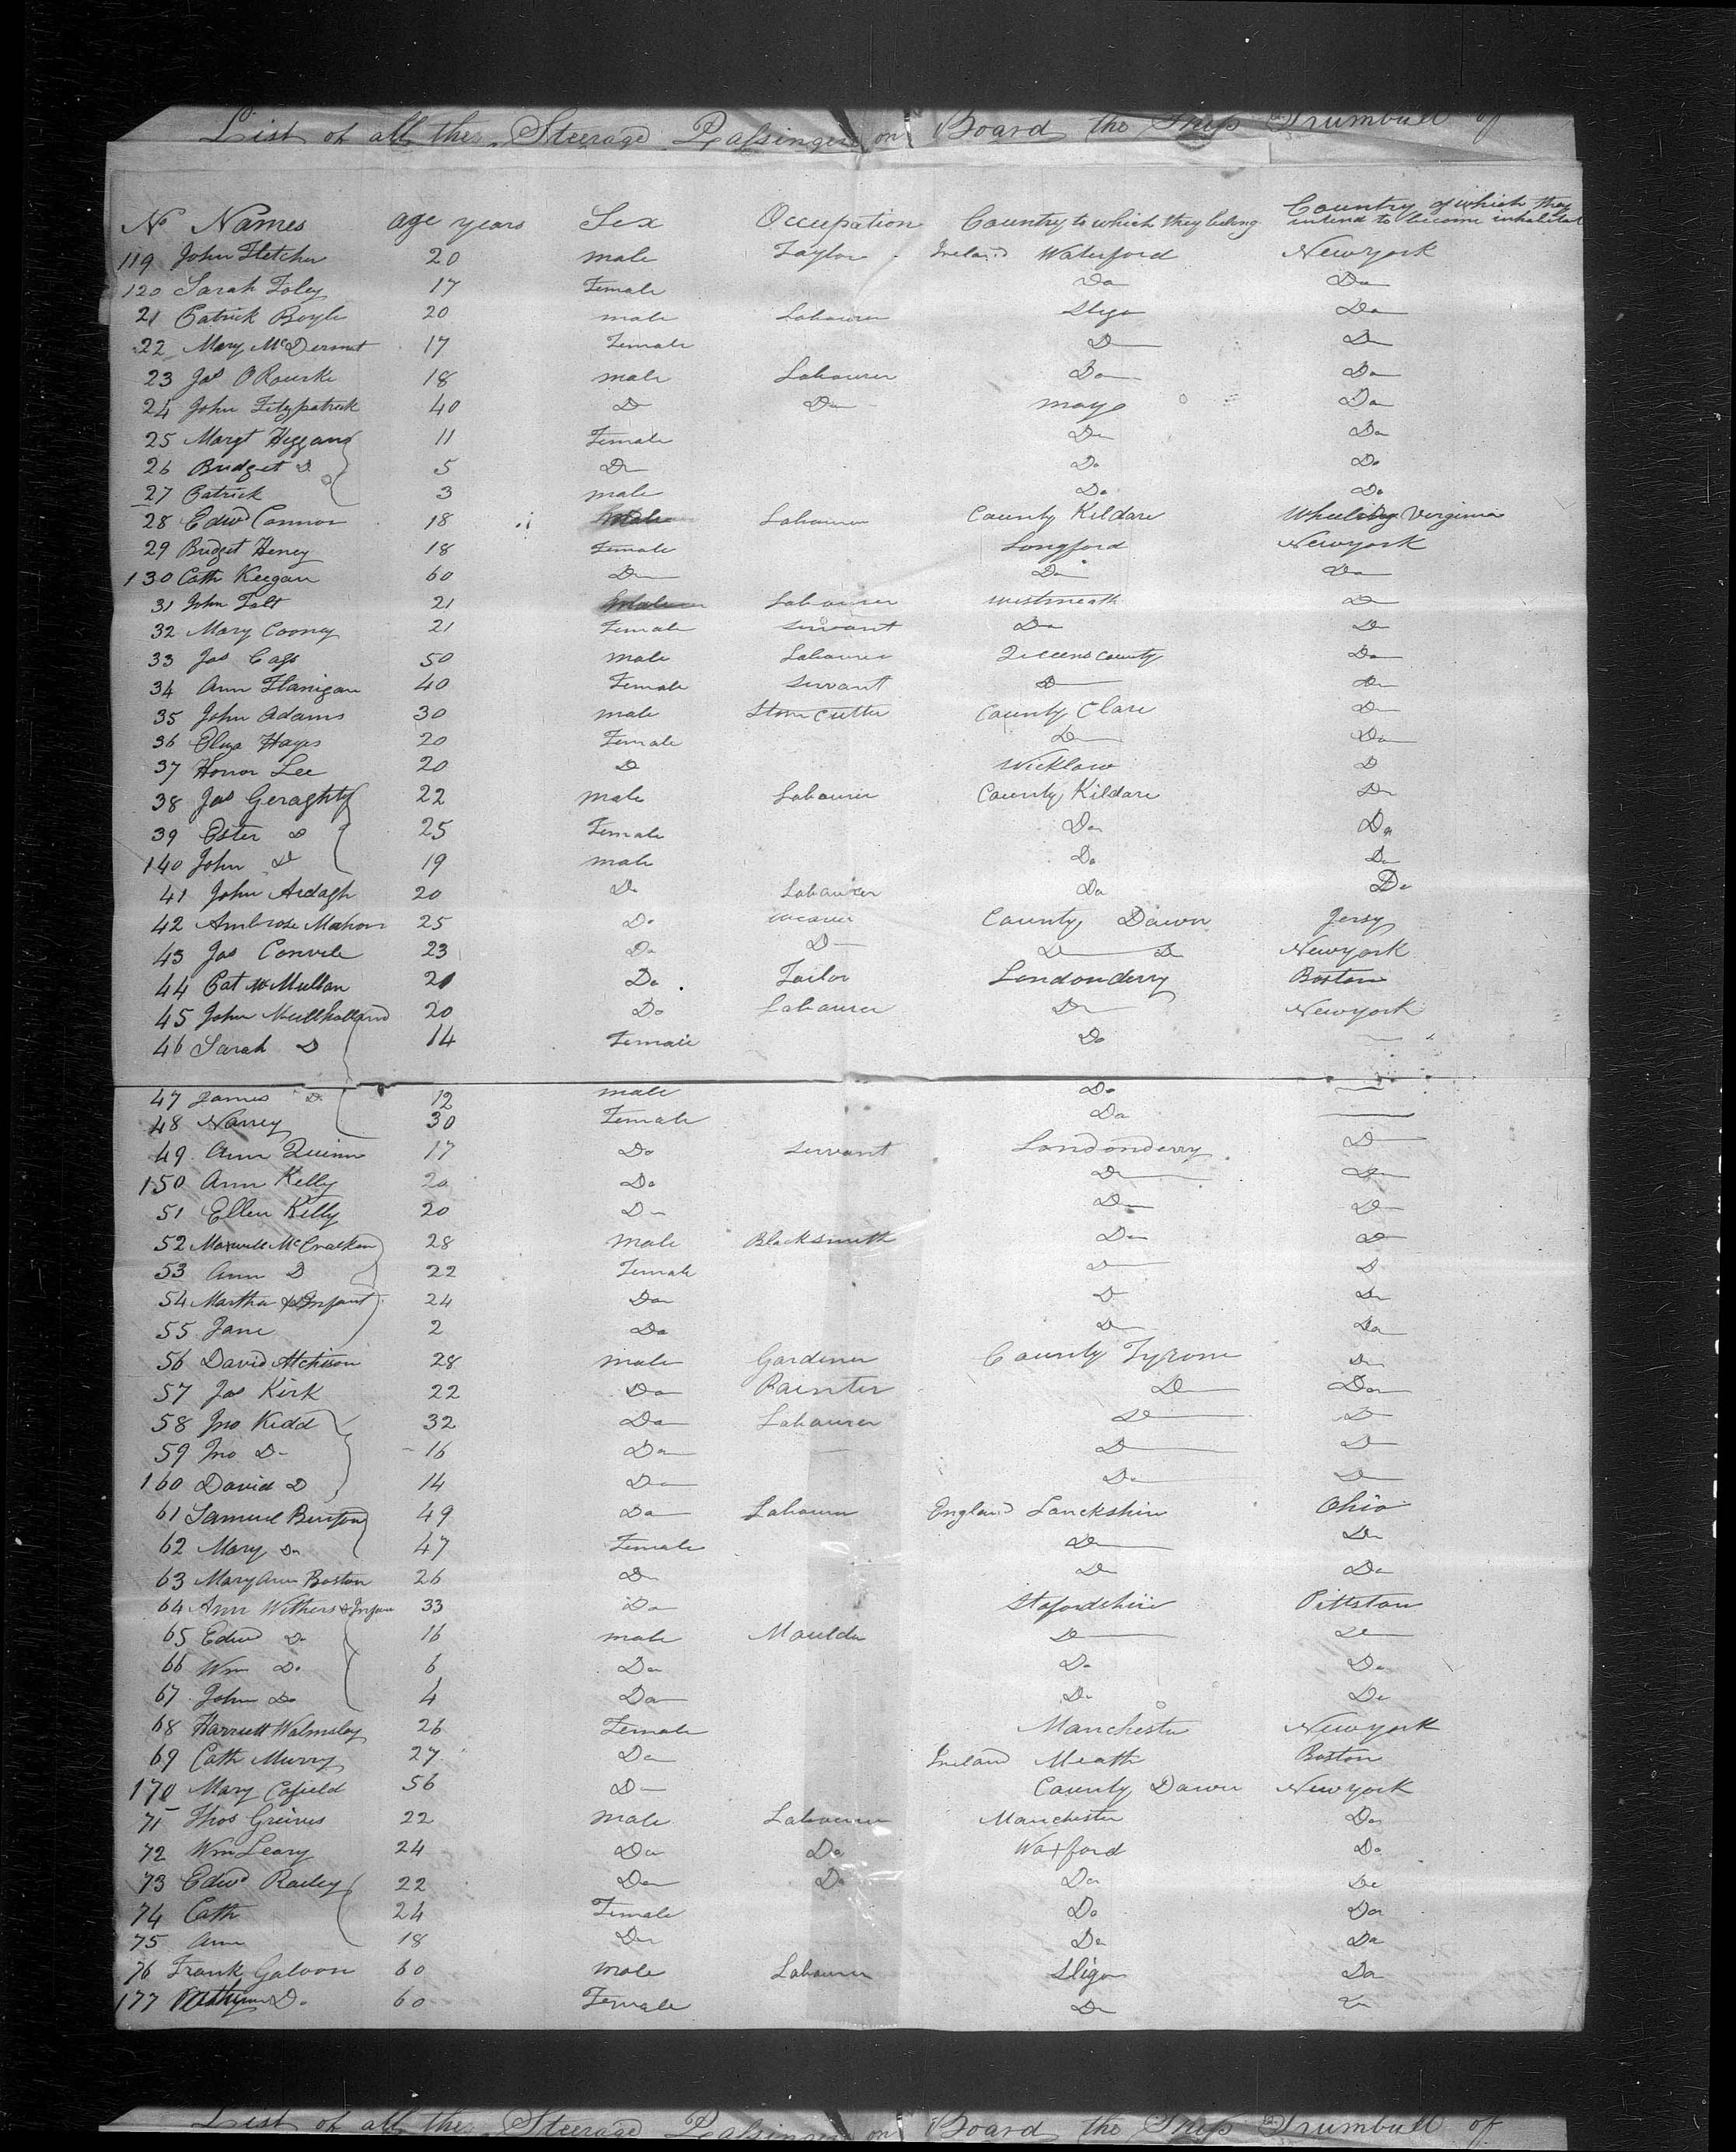 List of all the Steerage Passingers on Board the Ship Trumbull of
No Names age years Sex Occupation Country to which they belong Country of which they intend to become inhabitat
119 John Fletcher 20 male Taylor Ireland Waterford Newyork
120 Sarah Foley 17 Female Do Do
21 Patrick Boyle 20 male Labourer Sligo Do
22 Mary McDermot 17 Female D D
23 Jas O Rourke 18 male Labourer Do Do
24 John Fitzpatrick 40 D Do mayo Do
25 Margt Higgans 11 Female Do Do
26 Bridget D 5 Do Do Do
27 Patrick 3 male Do Do
28 Edwd Connor 18 Male Labourer County Kildare Wheeling Virginia
29 Bridget Heney 18 Female Longford Newyork
130 Cath Keegan 60 Do Do Do
31 John Talt 21 Male Labourer westmeath D
32 Mary Cooney 21 Female servant Do Do
33 Jas Cags 50 male Labourer Queens County Do
34 Ann Flanigan 40 Female servant D Do
35 John Adams 30 male Stone cutter County Clare Do
36 Eliza Hayes 20 Female D Do
37 Honor Lee 20 D Wicklow D
38 Jas Geraghty 22 male Labourer County Kildare Do
39 Ester D 25 Female Do Do
140 John D 19 male Do Do
41 John Ardagh 20 Do Labourer Do Do
42 Ambrose Mahon 25 Do weaver County Dawn Jersy
43 Jas Convile 23 Do D D D Newyork
44 Pat McMullan 21 Do Tailor Londonderry Boston
45 John Mullholland 20 Do Labourer D Newyork
46 Sarah D 14 Female Do
47 James D 12 male Do
48 Nancy 30 Female Do
49 Ann Quinn 17 Do servant Londonderry D
150 Ann Kelly 20 Do D D
51 Ellen Kelly 20 D Do D
52 Maxwell McCracken 28 male Blacksmith Do D
53 Ann D 22 Female D D
54 Martha & Infant 24 Do D Do
55 Jane 2 Do D Do
56 David Atchison 28 male Gardener County Tyrone Do
57 Jas Kirk 22 Do Painter D Do
58 Jno Kidd 32 Do Labourer D D
59 Jno D 16 Do D D
160 David D 14 Do Do D
61 Samuel Burton 49 Do Labourer England Lanckshire Ohio
62 Mary Do 47 Female D Do
63 Mary Ann Boston 26 D D Do
64 Ann Withers & Infan 33 Do Stafordshire Pittston
65 Edwd Do 16 male Moulder D D
66 Wm Do 6 Do Do Do
67 John Do 4 Do Do Do
68 Harriett Walmsley 26 Female Manchester Newyork
69 Cath Murry 27 Do Ireland Meath Boston
170 Mary Cofield 56 D County Dawn Newyork
71 Thos Greives 22 male Labourer Manchester Do
72 Wm Leary 24 Do Do Waxford Do
73 Edwd Railey 22 Do Do Do Do
74 Cath 24 Female Do Do
75 Ann 18 Do Do Do
76 Frank Galvon 60 male Labourer Sligo Do
177 Do 60 Female Do
List of all the Steerage Passingers on Board the Ship Trumbull of